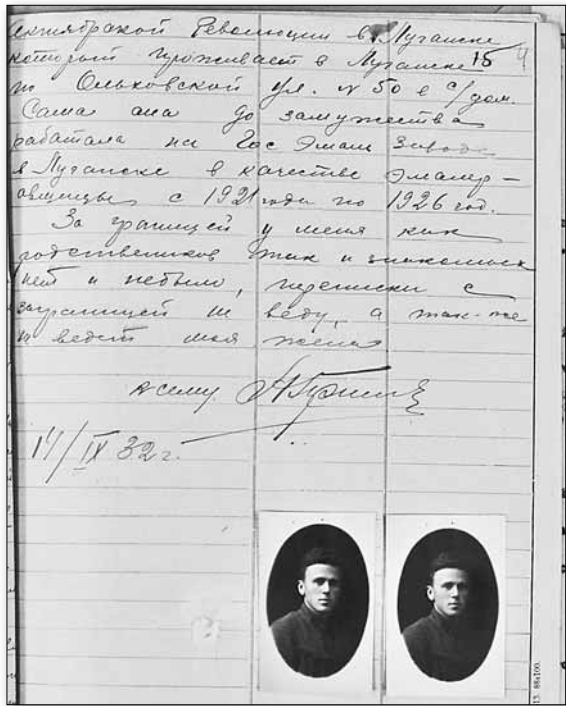 октябрской Революции в Луганске
который проживает в Луганске 15 4
по Ольховской ул. № 50 в с/дом.
Сама она до замужества
работала на Гос Эмаль Заводе
в Луганске в качестве эмалер–
овщицы с 1921 года по 1926 год.
За границей у меня как
родственников так и знакомых
нет и небыло, переписки с
заграницей не веду, а так-же
не ведет моя жена
К сему
14/IX 32 г.
13. 88х100.